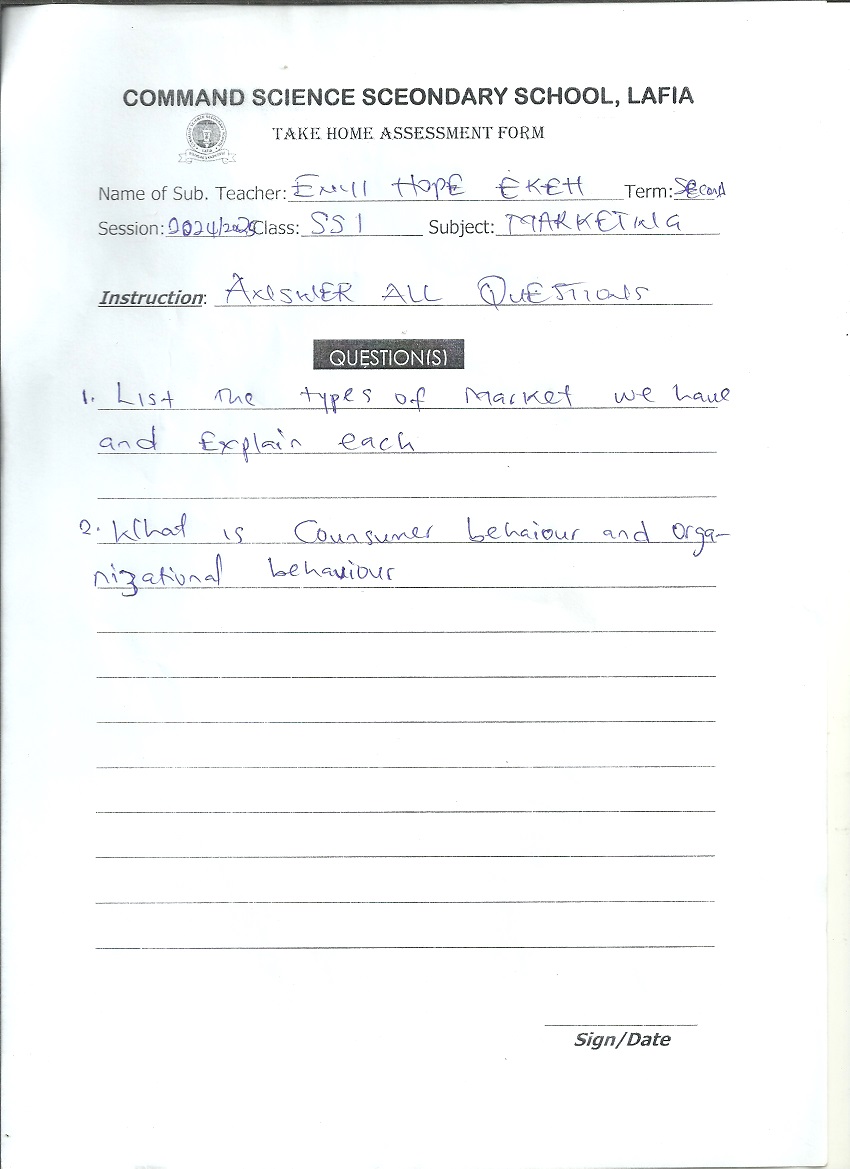 COMMAND SCIENCE SCEONDARY SCHOOL, LAFIA
TAKE HOME ASSESSMENT FORM
Name of Sub. Teacher: HOPE EKEH Term: Second
Session: 2024/2025 Class: SS 1 Subject: MARKETING
Instruction: ANSWER ALL QUESTIONS
QUESTION(S)
1. List the types of market we have
and Explain each
2. What is Counsumer behaiour and orga-
nizational behaviour
Sign/Date